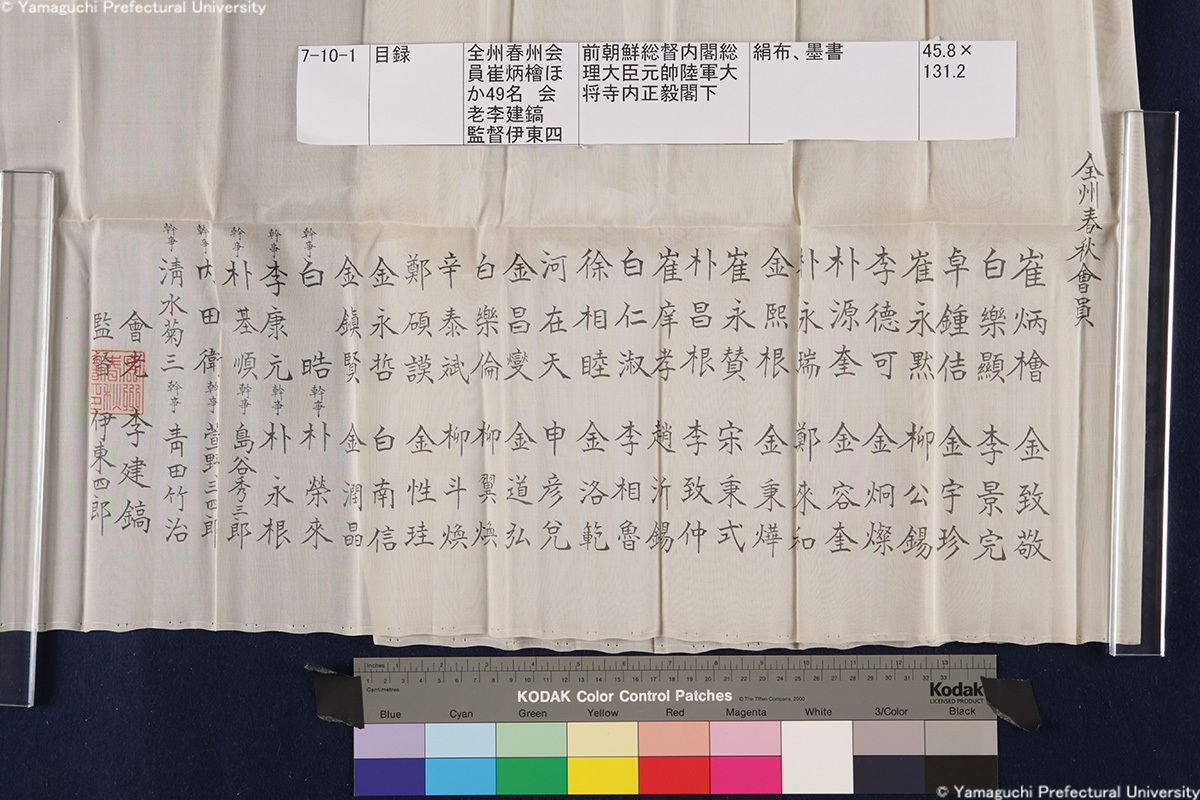 © Yamaguchi Prefectural University
7-10-1
目録
全州春州会
員崔炳檜ほ
か49名 会
老李建鎬
監督伊東四
前朝鮮総督内閣総
理大臣元帥陸軍大
将寺内正毅閣下
絹布、墨書
45.8×
131.2
全州春秋會員
崔炳檜 金致敬
白樂顯 李景完
卓鍾佶 金宇珍
崔永黙 柳公錫
李德可 金炯燦
朴源奎 金容奎
朴永瑞 鄭來和
金熙根 金秉燁
崔永贊 宋秉式
朴昌根 李致仲
崔庠孝 趙沂錫
白仁淑 李相魯
徐相睦 金洛範
河在天 申彦兌
金昌燮 金道弘
白樂倫 柳翼煥
辛泰斌 柳斗煥
鄭碩謨 金性珪
金永哲 白南信
金鎭賢 金潤晶
幹事 白晧 幹事 朴榮來
幹事 李康元 幹事 朴永根
幹事 朴基順 幹事 島谷秀三郎
幹事 内田衛 幹事 萱野三四郎
幹事 清水菊三 幹事 青田竹治
會老 李建鎬
監督 伊東四郎
Inches
Centimetres
KODAK Color Control Patches
© The Tiffen Company, 2000
Kodak
LICENSED PRODUCT
Blue
Cyan
Green
Yellow
Red
Magenta
White
3/Color
Black
© Yamaguchi Prefectural University